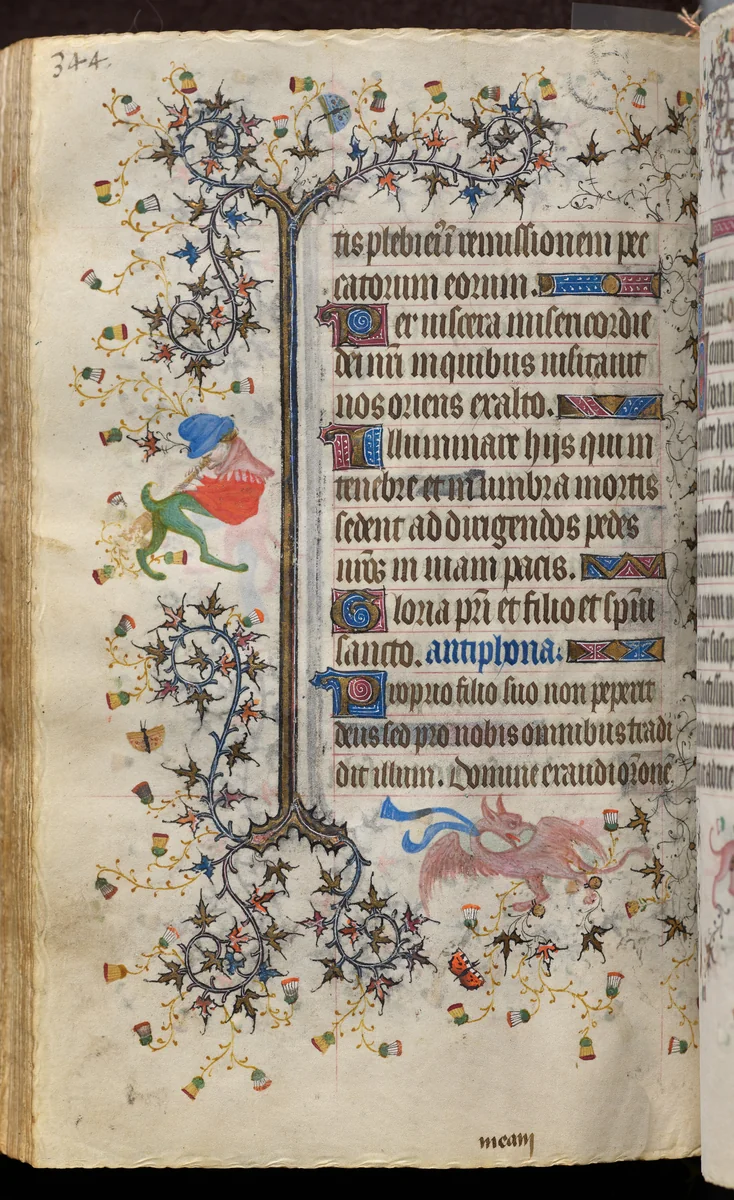 344.
tis plebi eiꝰ ī remissionem pec
catorum eorum.
Per uiscera misericordie
dei nr̄i in quibus uisitauit
nos oriens ex alto.
Illuminare hijs qui in
tenebre et in umbra mortis
sedent ad dirigendos pedes
nr̄os in uiam pacis.
Gloria pr̄i et filio et sp̄ui
sancto. antiphona:
Proprio filio suo non pepercit
deus sed pro nobis omnibus tradi
dit illum. Domine exaudi or̄one
meam